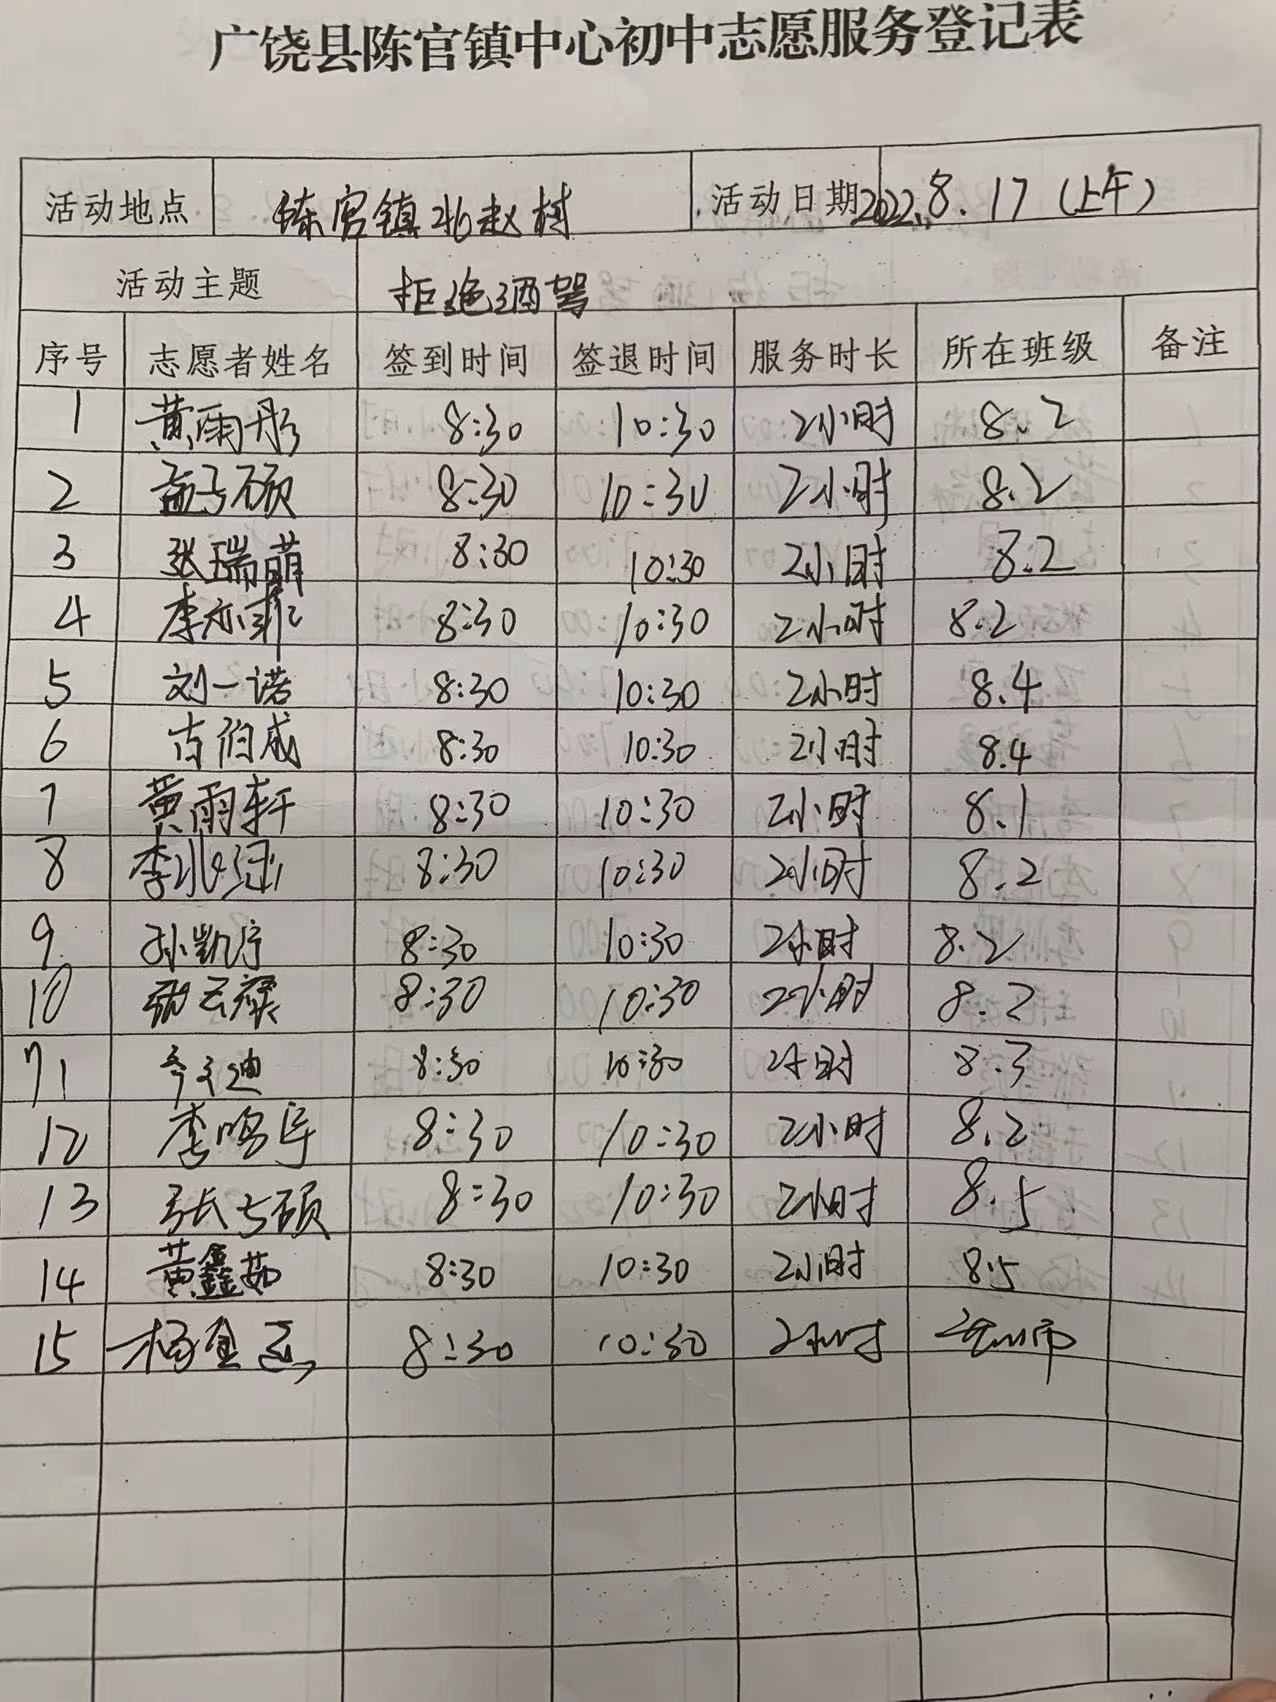 广饶县陈官镇中心初中志愿服务登记表
活动地点 陈官镇北赵村 活动日期 2022.8.17（上午）
活动主题 拒绝酒驾
序号 志愿者姓名 签到时间 签退时间 服务时长 所在班级 备注
1 黄雨彤 8:30 10:30 2小时 8.2
2 孟子硕 8:30 10:30 2小时 8.2
3 张瑞萌 8:30 10:30 2小时 8.2
4 李亦菲 8:30 10:30 2小时 8.2
5 刘一诺 8:30 10:30 2小时 8.4
6 古伯成 8:30 10:30 2小时 8.4
7 黄雨轩 8:30 10:30 2小时 8.1
8 李 8:30 10:30 2小时 8.2
9 孙凯宁 8:30 10:30 2小时 8.2
10 张云 8:30 10:30 2小时 8.2
11 8:30 10:30 2小时 8.3
12 李鸣宇 8:30 10:30 2小时 8.2
13 张 硕 8:30 10:30 2小时 8.5
14 黄鑫茹 8:30 10:30 2小时 8.5
15 杨金 8:30 10:30 2小时